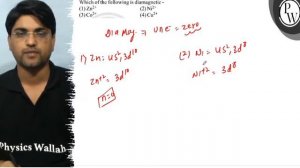 Which of the following is diamagnetic -
(1) Zn²⁺ (2) Ni²⁺
(3) Co²⁺ (4) Cu²⁺
Diamag ⇒ UNE = zero
1) Zn: 4s², 3d¹⁰
Zn⁺² = 3d¹⁰
n=0
(2) Ni = 4s², 3d⁸
Ni⁺² = 3d⁸
Physics Wallah